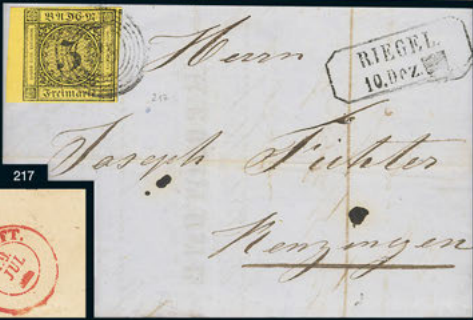 BADEN
3
Freimarke
Herrn
RIEGEL
10. Dez.
217
Joseph Fichter
217
Kenzingen
TT.
19
JUL